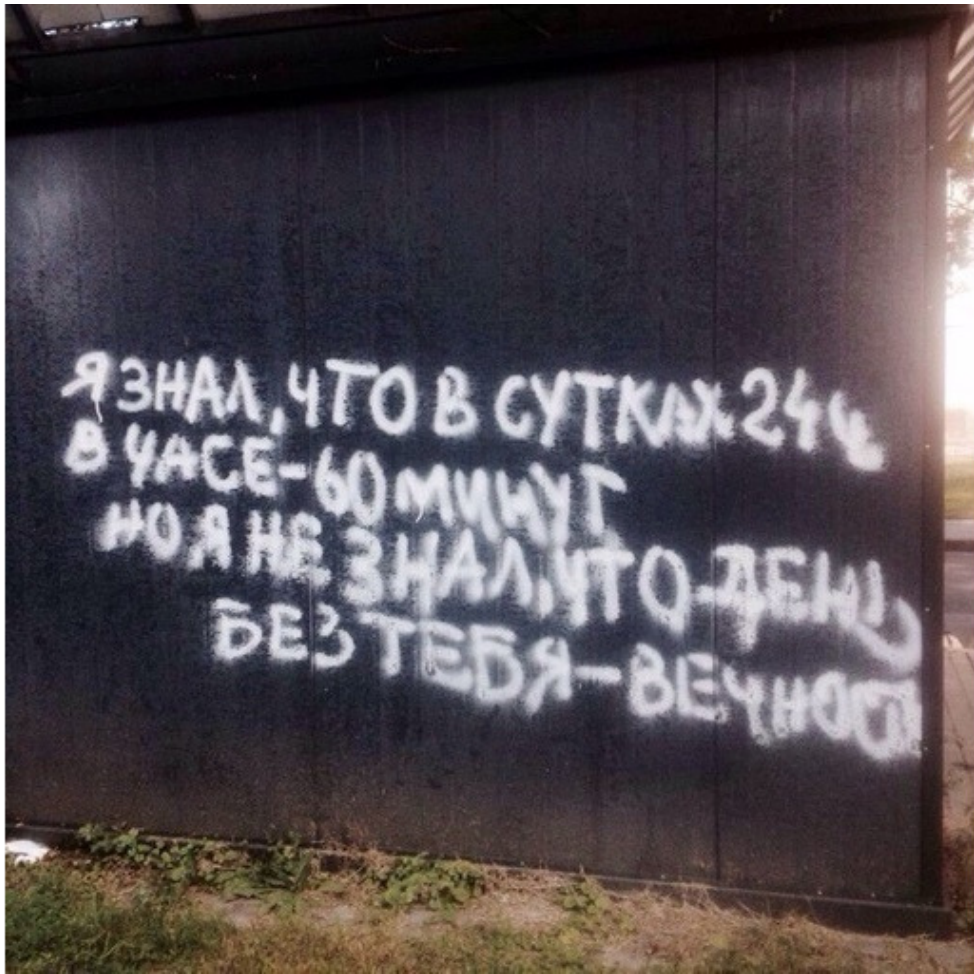 Я ЗНАЛ, ЧТО В СУТКАХ 24 Ч
В ЧАСЕ - 60 МИНУТ
НО Я НЕ ЗНАЛ, ЧТО ДЕНЬ
БЕЗ ТЕБЯ - ВЕЧНОСТЬ